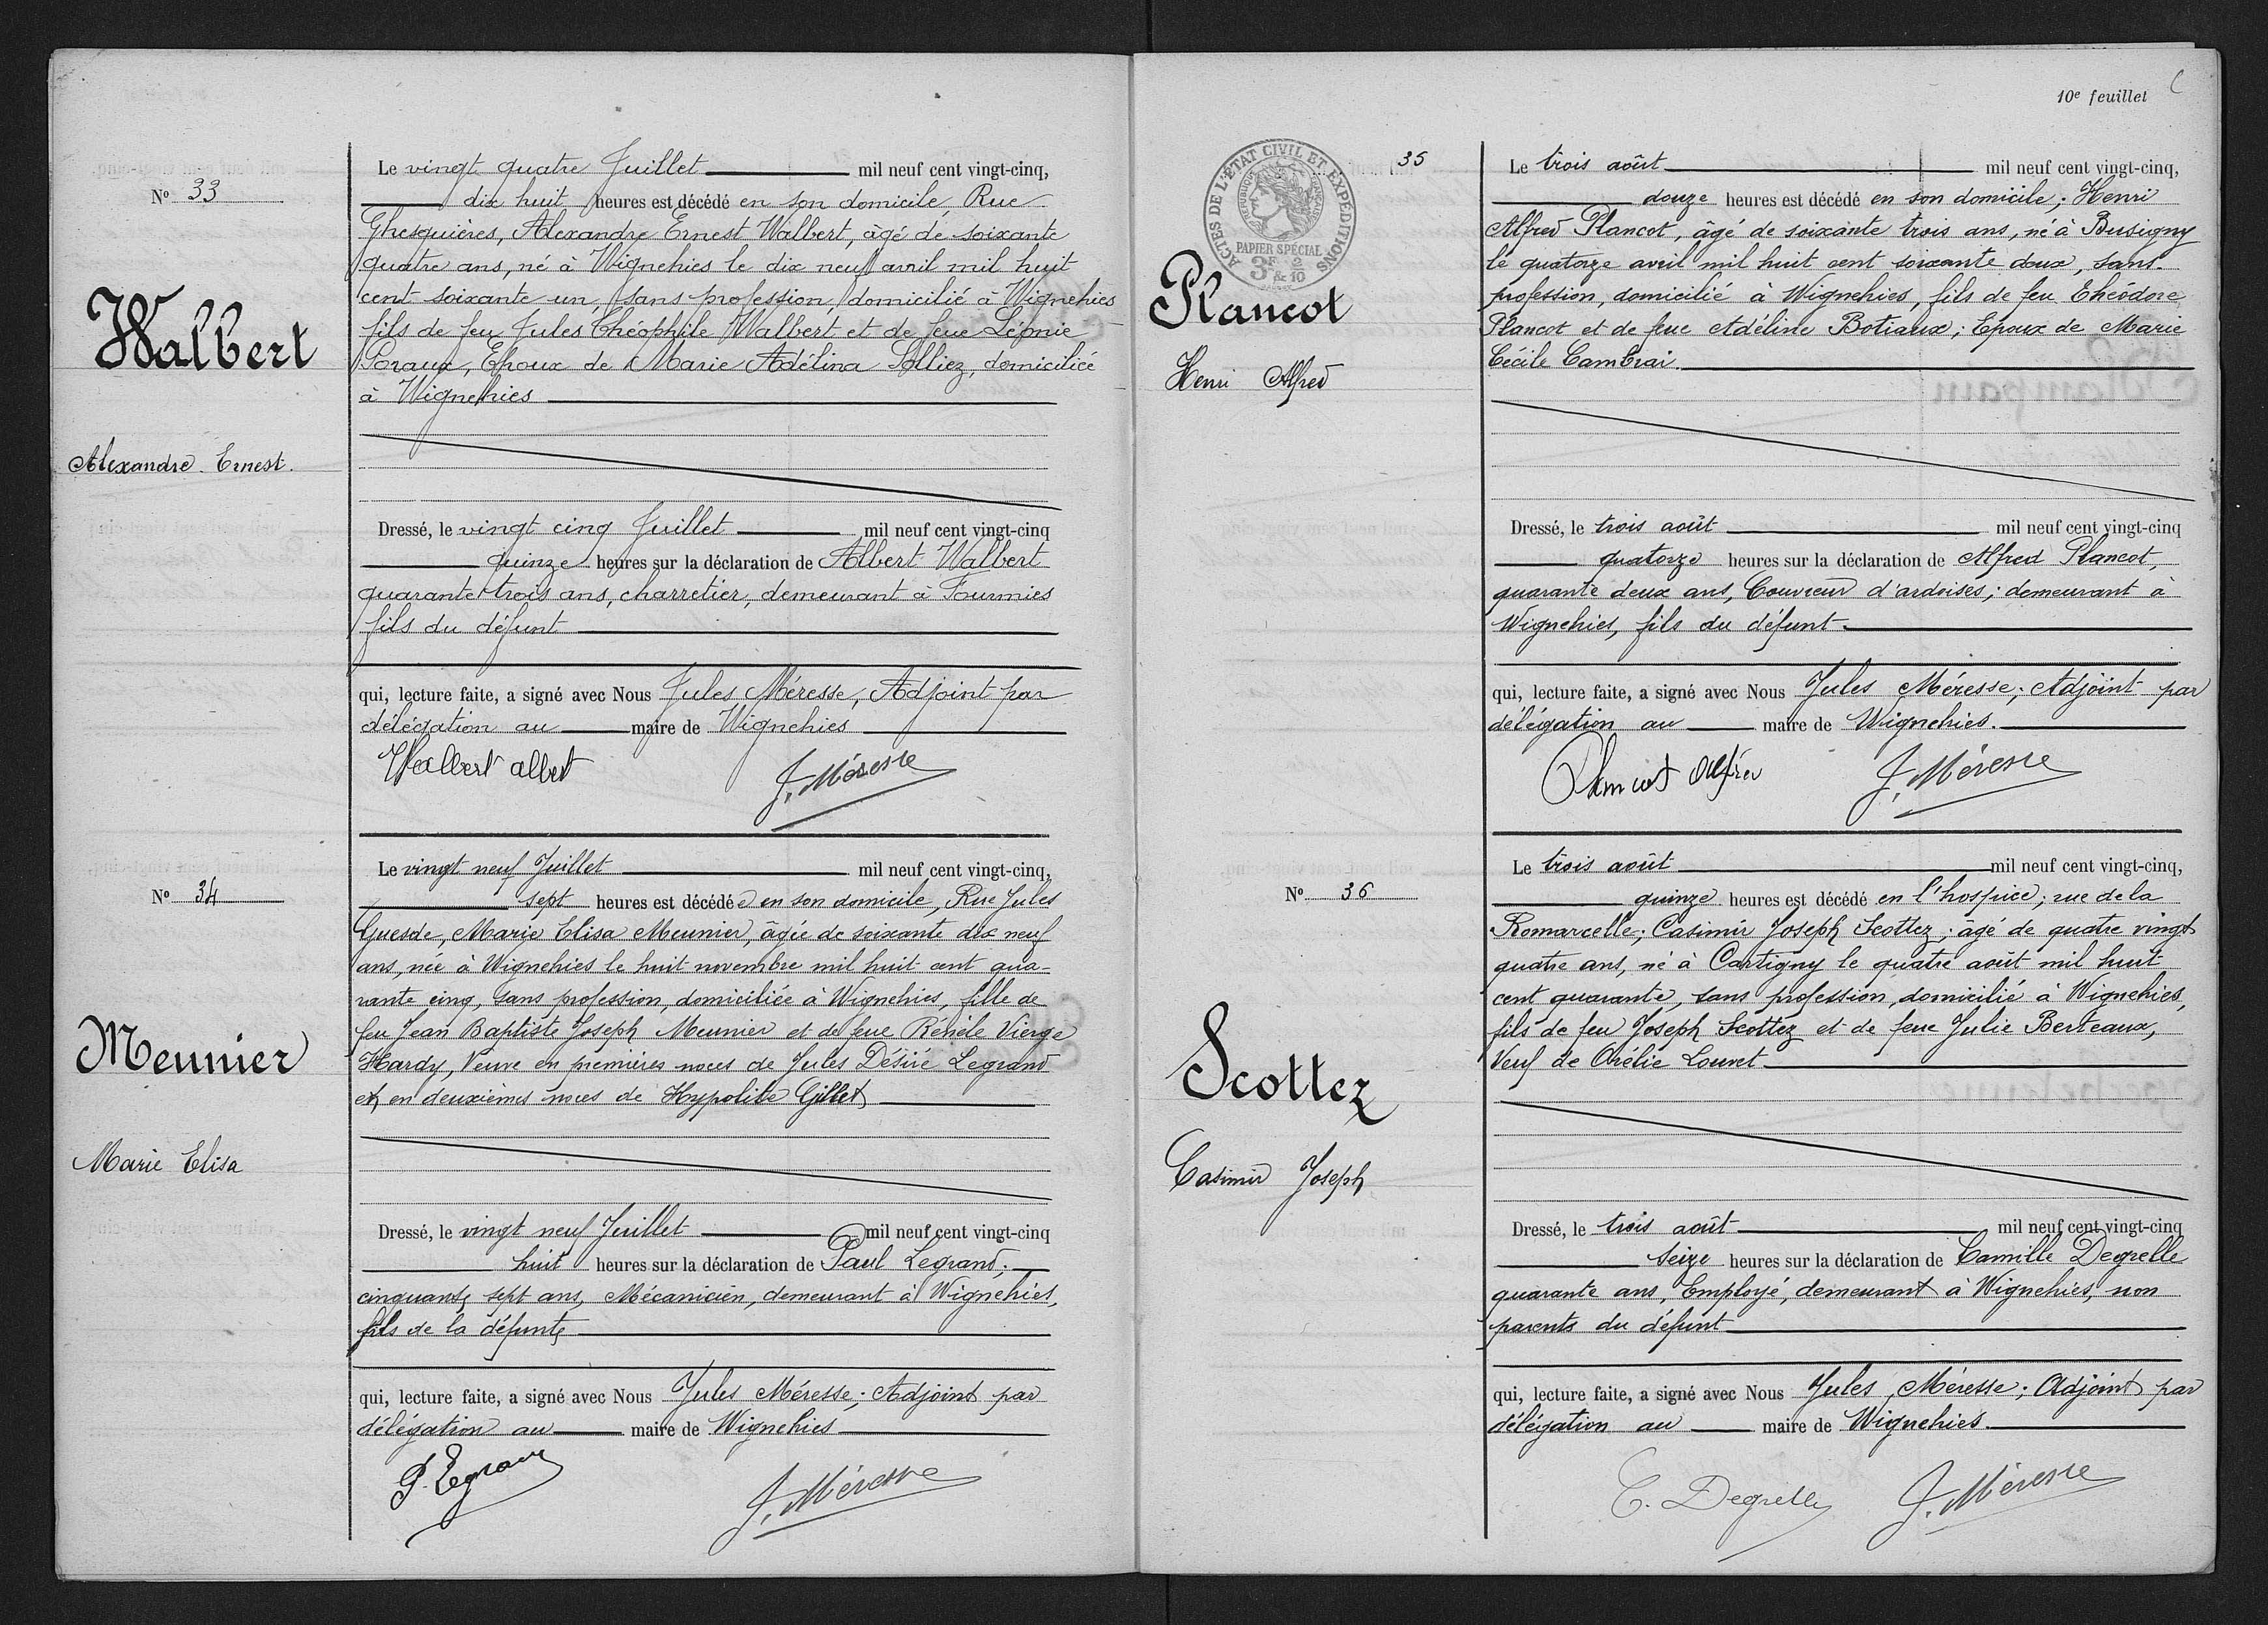 N° 33
Walbert
Alexandre Ernest.
Le vingt quatre Juillet mil neuf cent vingt-cinq,
dix huit heures est décédé en son domicile, Rue
Ghesquières, Alexandre Ernest Walbert, âgé de soixante
quatre ans, né à Wignehies le dix neuf avril mil huit
cent soixante un, sans profession, domicilié à Wignehies
fils de feu Jules Théophile Walbert et de feue Léonie
Poraux, Epoux de Marie Adélina Solliez, domiciliée
à Wignehies
Dressé, le vingt cinq Juillet mil neuf cent vingt-cinq
quinze heures sur la déclaration de Albert Walbert
quarante trois ans, charretier, demeurant à Fourmies
fils du défunt
qui, lecture faite, a signé avec Nous Jules Méresse, Adjoint par
délégation au maire de Wignehies
Walbert albert
J. Méresse
N° 34
Meunier
Marie Elisa
Le vingt neuf Juillet mil neuf cent vingt-cinq,
sept heures est décédée en son domicile, Rue Jules
Guesde, Marie Elisa Meunier, âgée de soixante dix neuf
ans, née à Wignehies le huit novembre mil huit cent qua-
rante cinq, sans profession, domiciliée à Wignehies, fille de
feu Jean Baptiste Joseph Meunier et de feue Vierge
Hardy, Veuve en premières noces de Jules Désiré Legrand
et en deuxièmes noces de Hypolite Gillet
Dressé, le vingt neuf Juillet mil neuf cent vingt-cinq
huit heures sur la déclaration de Paul Legrand,
cinquante sept ans, Mécanicien, demeurant à Wignehies,
fils de la défunte
qui, lecture faite, a signé avec Nous Jules Méresse, Adjoint par
délégation au maire de Wignehies
P. Legrand
J. Méresse
10e feuillet
ACTES DE L'ÉTAT CIVIL ET EXPÉDITIONS
RÉPUBLIQUE FRANÇAISE
PAPIER SPÉCIAL
3F 2 & 10
35
Plancot
Henri Alfred
Le trois août mil neuf cent vingt-cinq,
douze heures est décédé en son domicile; Henri
Alfred Plancot, âgé de soixante trois ans, né à Busigny
le quatorze avril mil huit cent soixante deux, sans
profession, domicilié à Wignehies, fils de feu Théodore
Plancot et de feue Adéline Botiaux; Epoux de Marie
Cécile Cambrai.
Dressé, le trois août mil neuf cent vingt-cinq
quatorze heures sur la déclaration de Alfred Plancot,
quarante deux ans, Couvreur d'ardoises; demeurant à
Wignehies, fils du défunt.
qui, lecture faite, a signé avec Nous Jules Méresse; Adjoint par
délégation au maire de Wignehies.
Plancot Alfred
J. Méresse
N° 36
Scottez
Casimir Joseph
Le trois août mil neuf cent vingt-cinq,
quinze heures est décédé en l'hospice; rue de la
Romarcelle; Casimir Joseph Scottez; âgé de quatre vingt
quatre ans, né à Cartigny le quatre août mil huit
cent quarante, sans profession, domicilié à Wignehies,
fils de feu Joseph Scottez et de feue Julie Berteaux,
Veuf de Orélie Louvet.
Dressé, le trois août mil neuf cent vingt-cinq
seize heures sur la déclaration de Camille Degrelle
quarante ans, Employé, demeurant à Wignehies, non
parents du défunt
qui, lecture faite, a signé avec Nous Jules Méresse; Adjoint par
délégation au maire de Wignehies.
C. Degrelle
J. Méresse